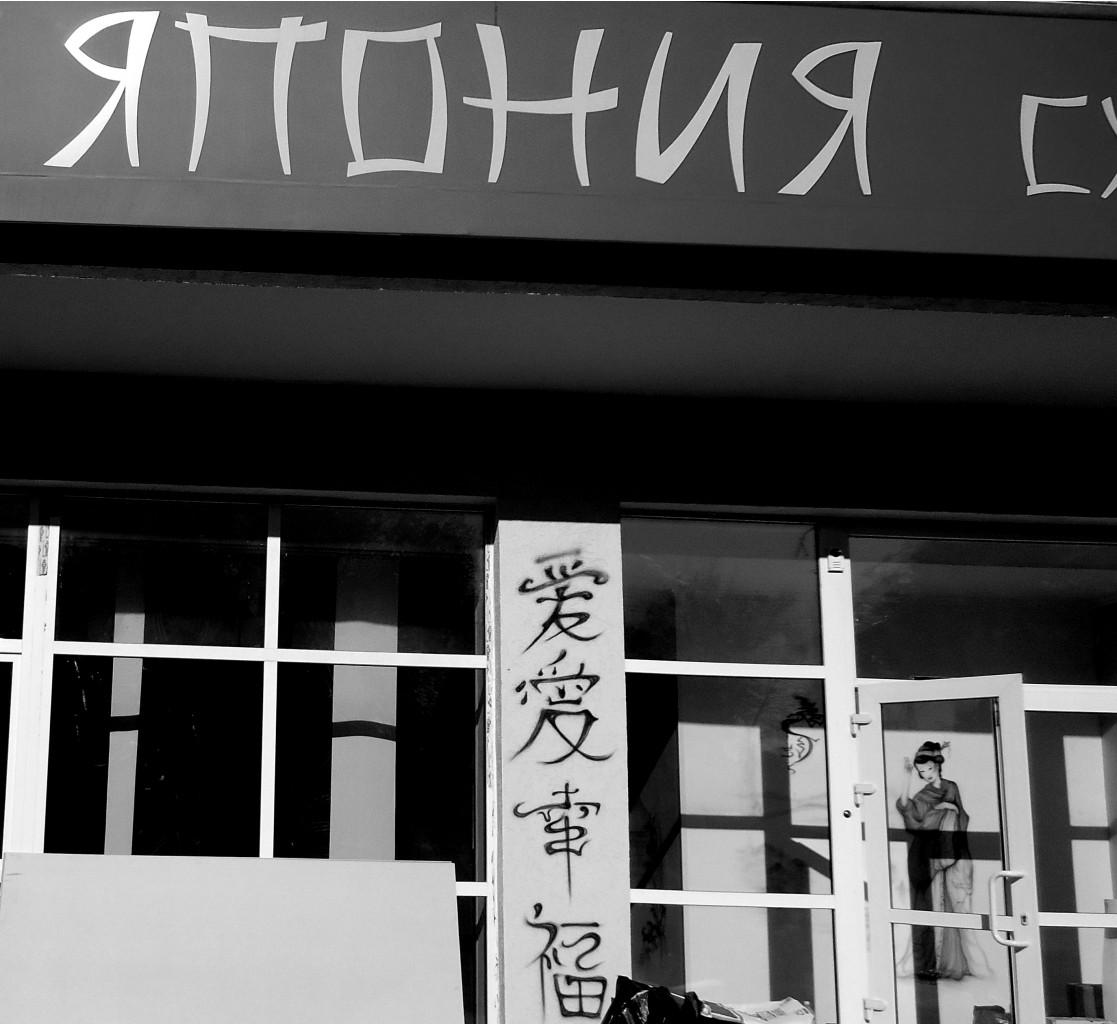 ЯПОНИЯ
爱
愛
幸
福